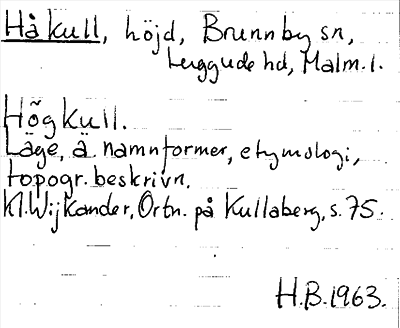 Håkull, höjd, Brunnby sn,
Luggude hd, Malm. l.
Högkull.
Läge, ä. namnformer, etymologi,
topogr. beskrivn.
Kl. Wijkander, Ortn. på Kullaberg, s. 75.
H.B. 1963.